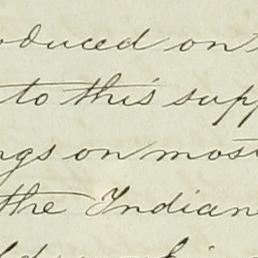 oduced on
to this supp
ngs on most
the Indian